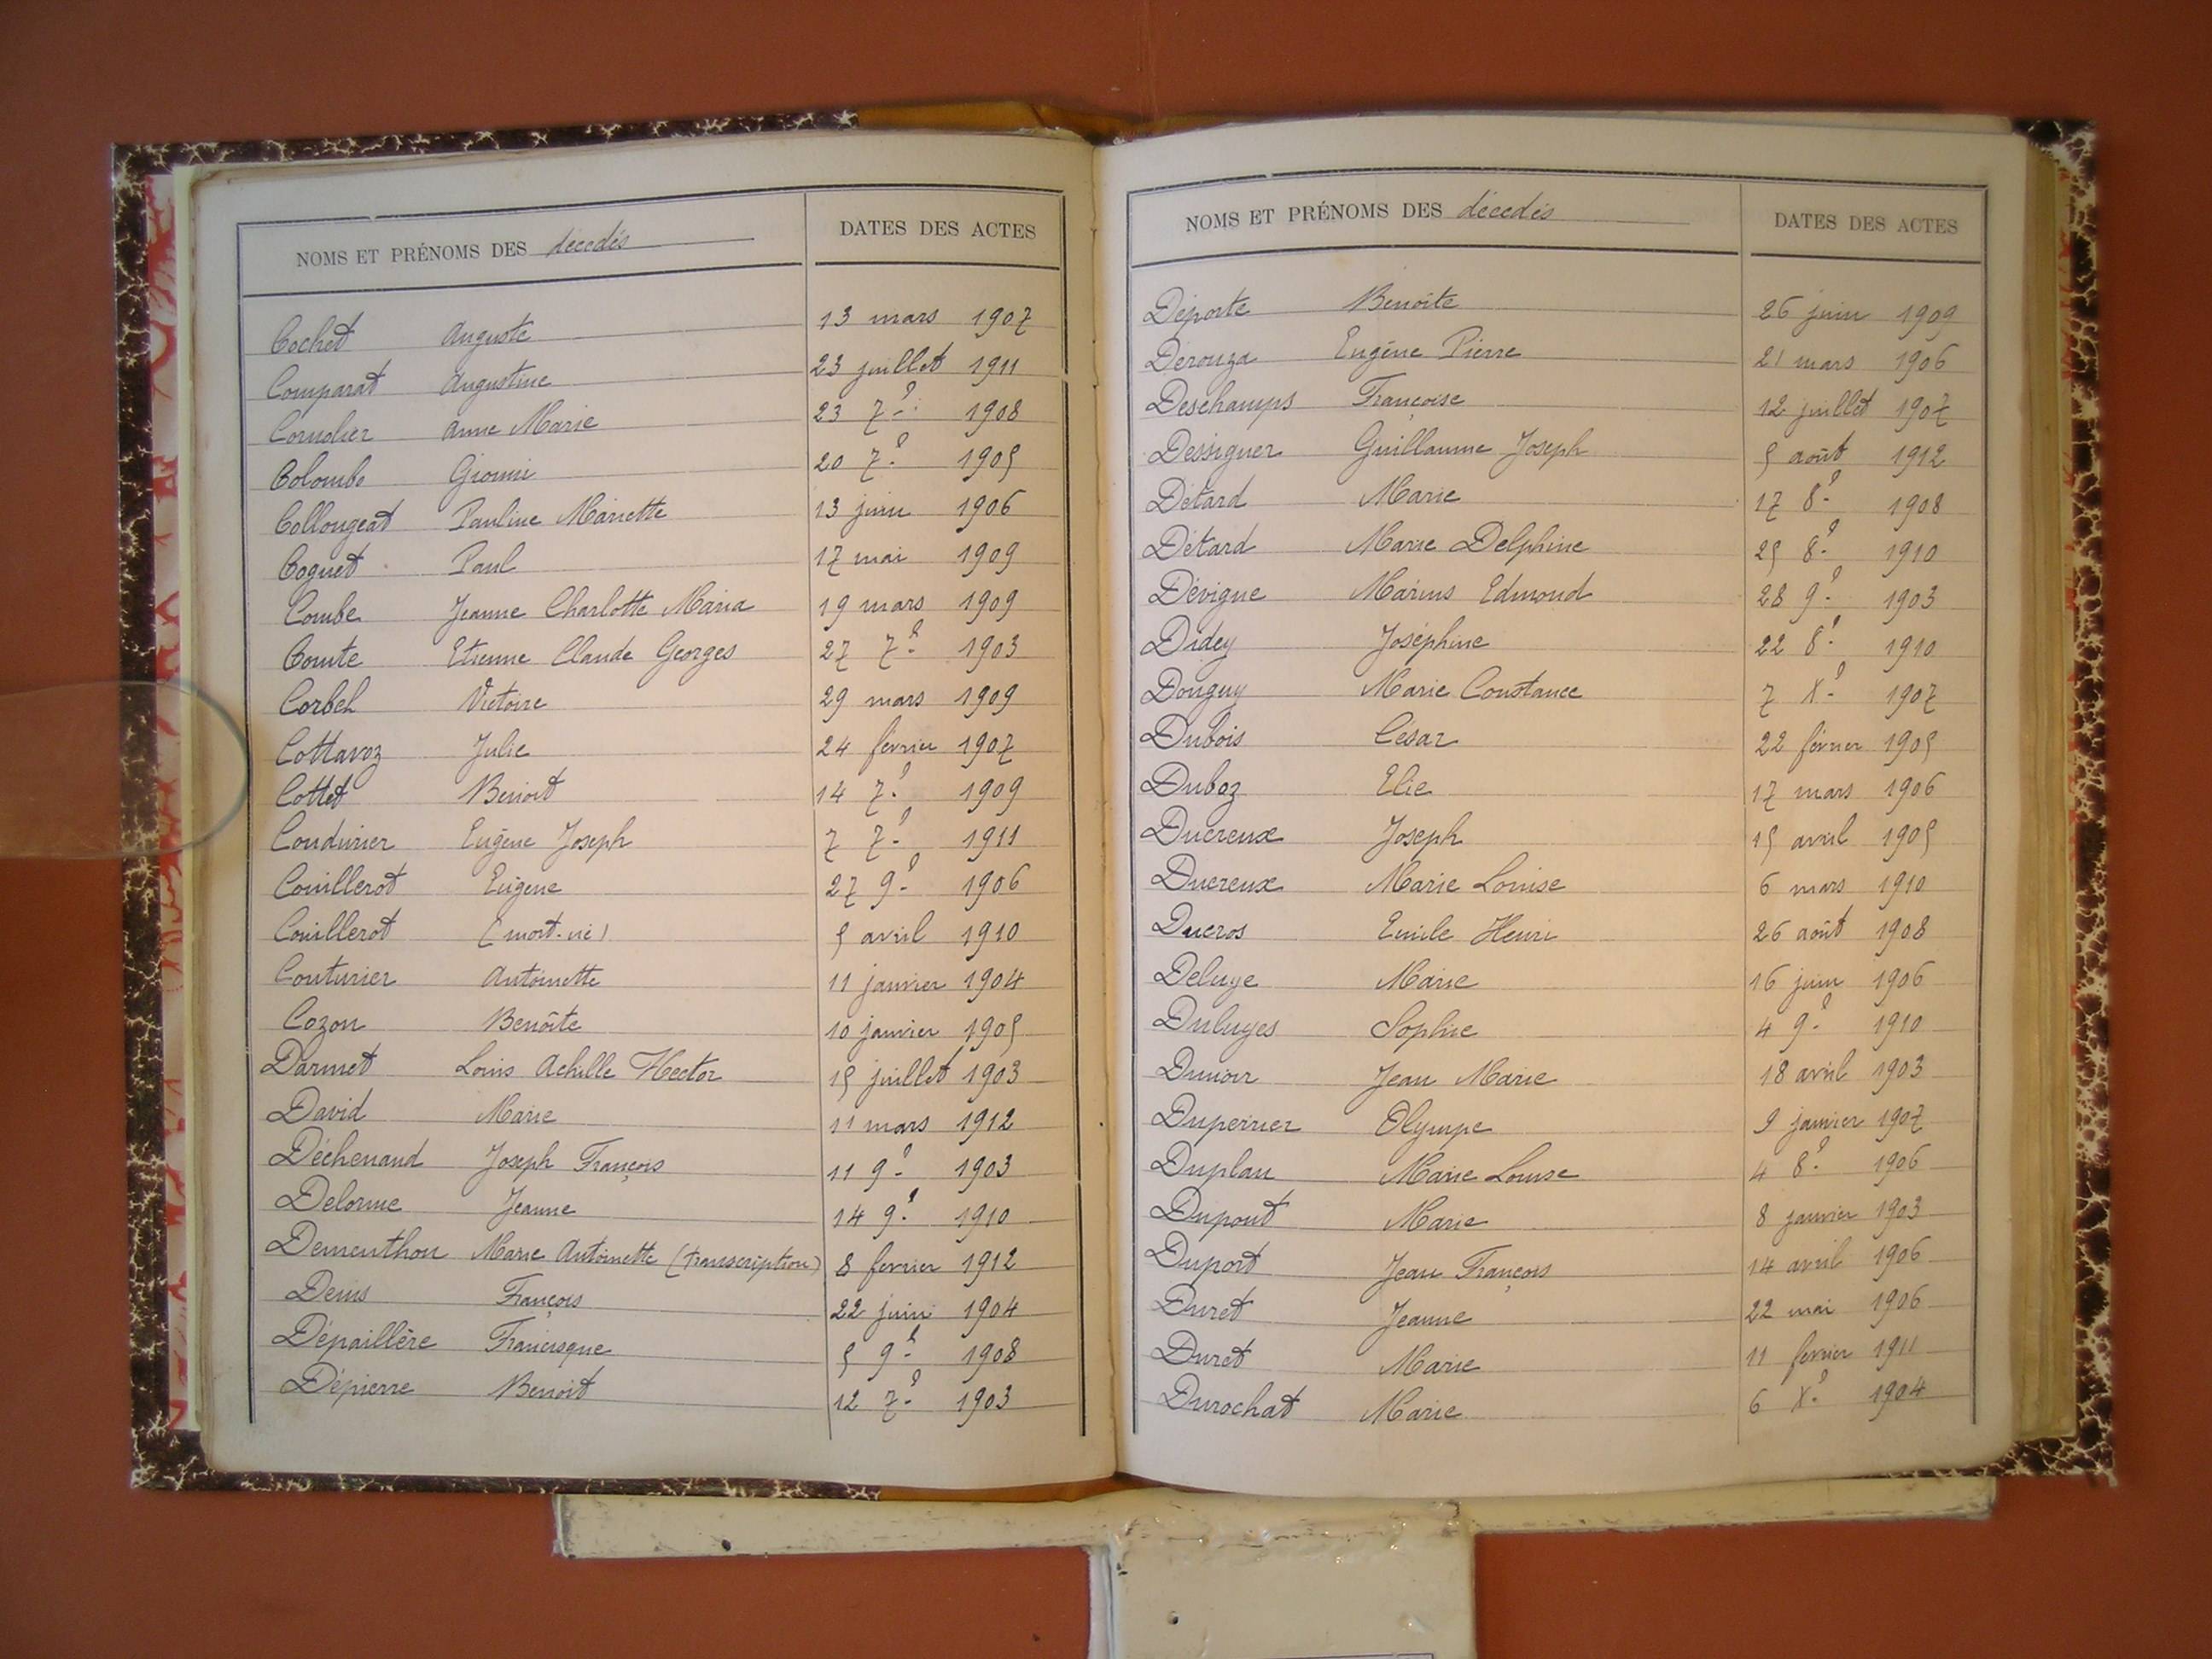 NOMS ET PRÉNOMS DES décédés DATES DES ACTES
Cochet Auguste 13 mars 1907
Comparat Augustine 23 juillet 1911
Cornolier Anne Marie 23 7.e 1908
Colombo Giomi 20 7.e 1905
Collongeat Pauline Mariette 13 juin 1906
Coquet Paul 17 mai 1909
Combe Jeanne Charlotte Maria 19 mars 1909
Comte Etienne Claude Georges 27 7.e 1903
Corbel Victoire 29 mars 1909
Cottavoz Julie 24 février 1907
Cottet Benoit 14 7.e 1909
Coudurier Eugène Joseph 7 7.e 1911
Couillerot Eugène 27 9.e 1906
Couillerot (mort-né) 5 avril 1910
Couturier Antoinette 11 janvier 1904
Cozon Benoîte 10 janvier 1905
Darmet Louis Achille Hector 15 juillet 1903
David Marie 11 mars 1912
Déchenaud Joseph François 11 9.e 1903
Delorme Jeanne 14 9.e 1910
Dementhon Marie Antoinette (transcription) 8 fevrier 1912
Denis François 22 juin 1904
Dépaillère Francisque 5 9.e 1908
Dépierre Benoit 12 7.e 1903
NOMS ET PRÉNOMS DES décédés DATES DES ACTES
Déporte Benoîte 26 juin 1909
Dérouza Eugène Pierre 21 mars 1906
Deschamps Françoise 12 juillet 1907
Dessiguer Guillaume Joseph 5 août 1912
Détard Marie 17 8.e 1908
Détard Marie Delphine 25 8.e 1910
Dévigne Marius Edmond 28 9.e 1903
Didey Joséphine 22 8.e 1910
Donguy Marie Constance 7 X.e 1907
Dubois César 22 février 1905
Duboz Elie 17 mars 1906
Ducreux Joseph 15 avril 1905
Ducreux Marie Louise 6 mars 1910
Ducros Emile Henri 26 août 1908
Deluye Marie 16 juin 1906
Duluyes Sophie 4 9.e 1910
Dunoir Jean Marie 18 avril 1903
Duperrier Olympe 9 janvier 1907
Duplan Marie Louise 4 8.e 1906
Dupont Marie 8 janvier 1903
Duport Jean François 14 avril 1906
Duret Jeanne 22 mai 1906
Duret Marie 11 fevrier 1911
Durochat Marie 6 X.e 1904